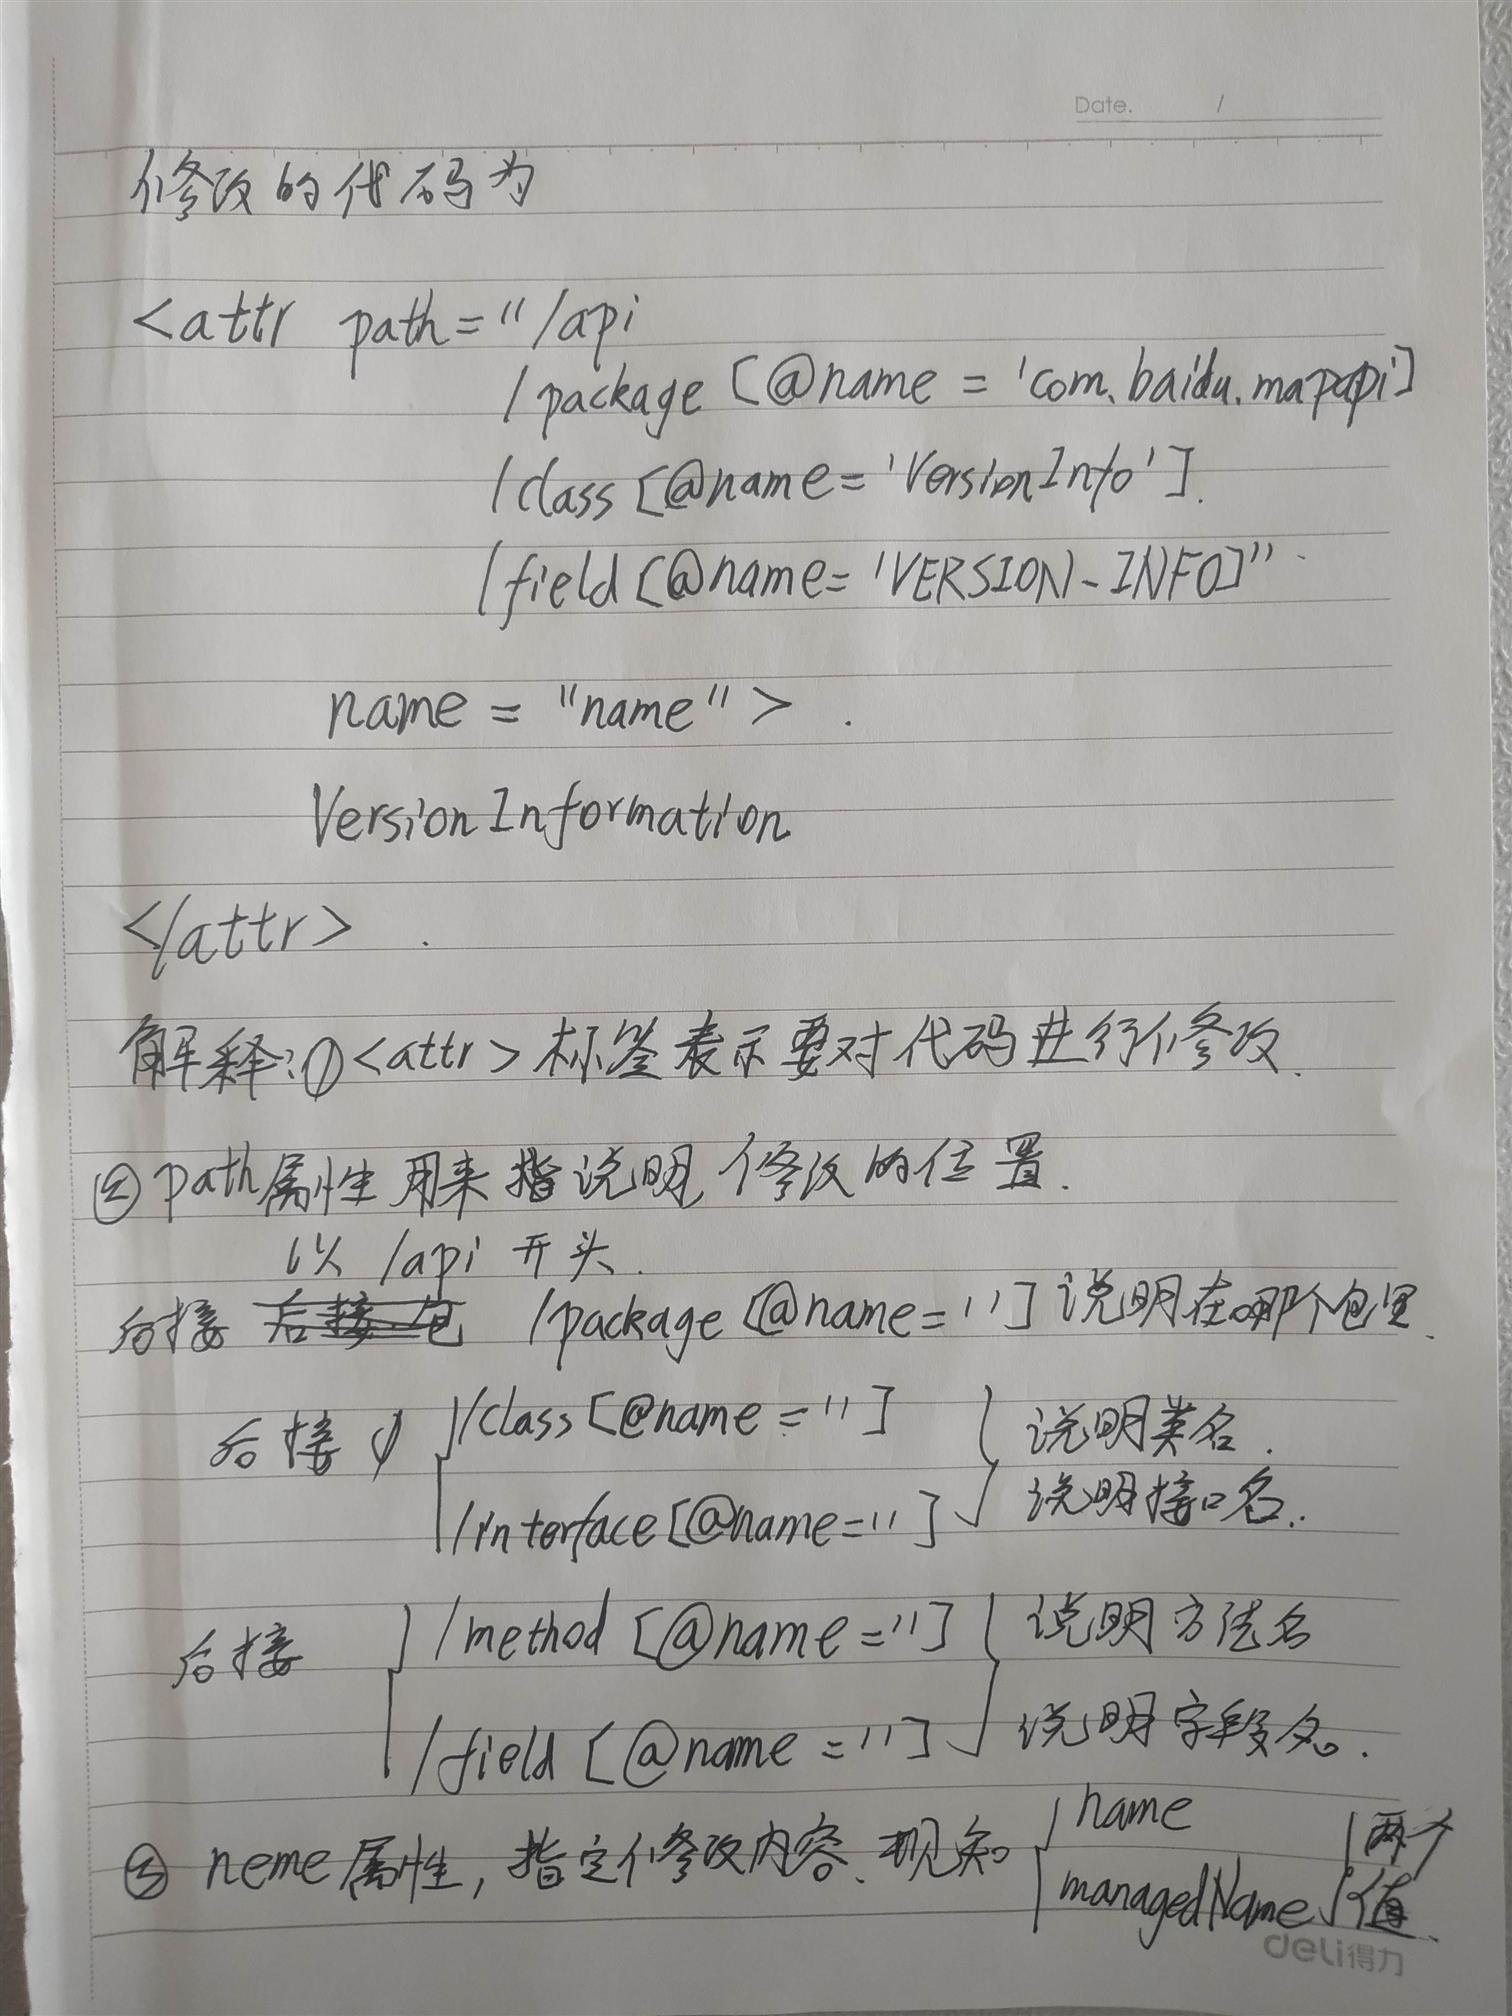 Date. /
修改的代码为
<attr path="/api
/package[@name='com.baidu.mapapi']
/class[@name='VersionInfo'].
/field[@name='VERSION-INFO]"
name="name">.
VersionInformation
</attr>.
解释:①<attr>标签表示要对代码进行修改.
②path属性用来指说明,修改的位置.
以/api开头.
后接 后接包 /package[@name='']说明在哪个包里.
后接 /class[@name=''] 说明类名.
/interface[@name=''] 说明接口名.
后接 /method[@name=''] 说明方法名
/field[@name=''] 说明字段名.
③neme属性,指定修改内容.现知 name 两个
managedName 值.
deli得力